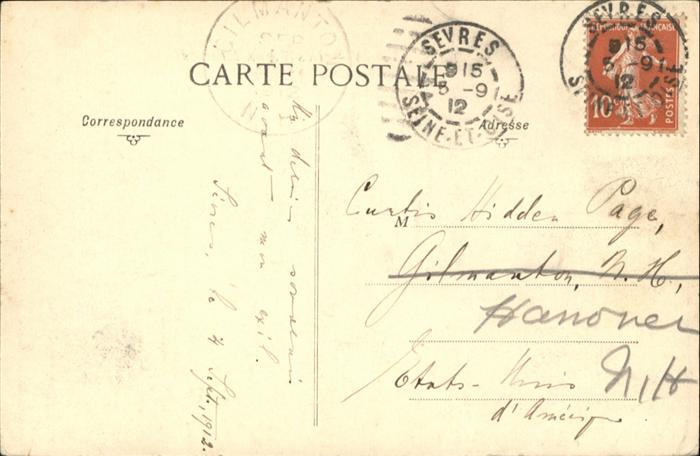 CARTE POSTALE
Correspondance
Adresse
GILMANTON
SEVRES
9 15
5 -9
12
SEINE-ET-OISE
SEVRES
9 15
5 -9
12
FRANÇAISE
POSTES
10
Mon dernier souvenir
avant mon exil.
Sèvres, le 4 Sept., 1912.
M
Curtis Hidden Page,
Gilmanton, N.H.,
Hanover
N.H
Etats-Unis
d'Amérique